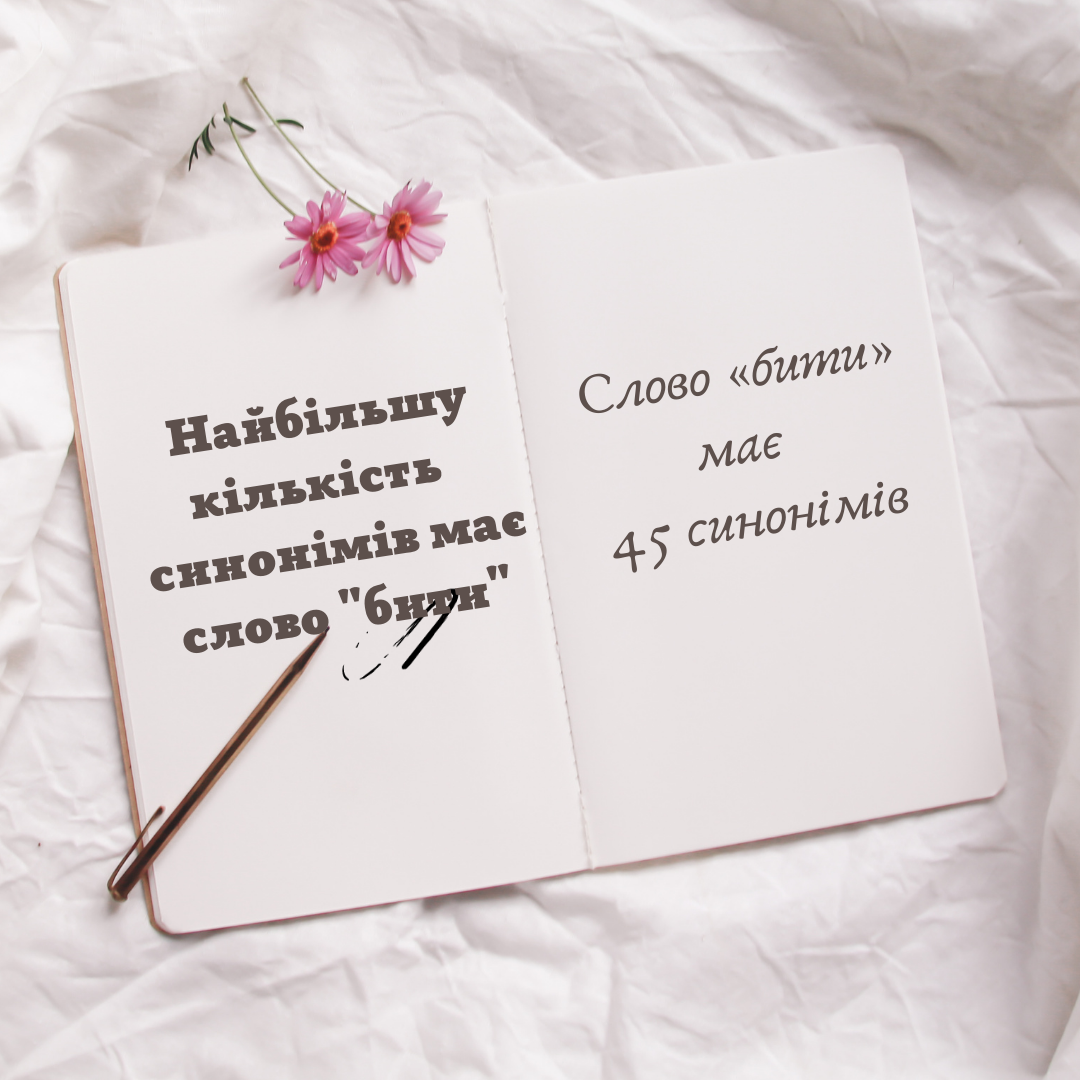 Найбільшу
кількість
синонімів має
слово "бити"
Слово «бити»
має
45 синонімів